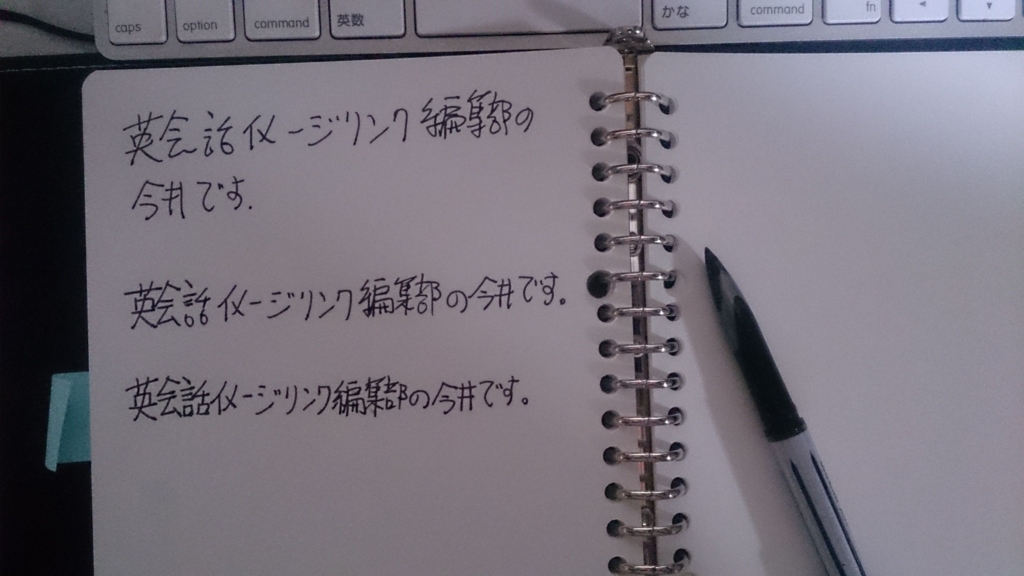 caps option command 英数 かな command fn ◀ ▼
英会話イメージリンク編集部の
今井です.
英会話イメージリンク編集部の今井です。
英会話イメージリンク編集部の今井です。